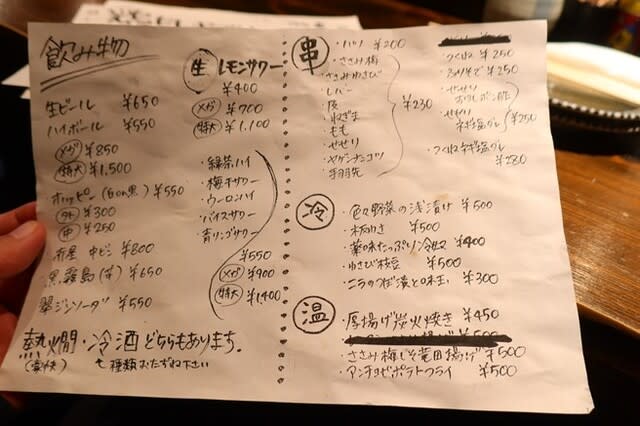 飲み物
生ビール ¥650
ハイボール ¥550
メガ ¥850
特大 ¥1,500
ホッピー(白or黒) ¥550
外 ¥300
中 ¥250
赤星 中ビン ¥800
黒霧島(芋) ¥650
翠ジンソーダ ¥550
熱燗・冷酒どちらもあります。
種類おたずね下さい
生 レモンサワー
¥400
メガ ¥700
特大 ¥1,100
・緑茶ハイ
・梅干サワー
・ウーロンハイ
・バイスサワー
・青リンゴサワー
¥550
メガ ¥900
特大 ¥1,400
串
・ハツ ¥200
・ささみ梅
・ささみわさび
・レバー
・皮
・ねぎま
・もも
・せせり
・ヤゲンナンコツ
・手羽先
¥230
・つくね ¥250
・ぶりそで ¥250
・せせり
おろしポン酢
・せせり
ネギ塩ダレ
¥250
・つくねネギ塩ダレ
¥280
冷
・色々野菜の浅漬け ¥500
・板わさ ¥500
・薬味たっぷり冷奴 ¥400
・わさび枝豆 ¥500
・ニラのつけ漬と味玉 ¥300
温
・厚揚げ炭火焼き ¥450
・ささみ梅しそ竜田揚げ ¥500
・アンチョビポテトフライ ¥500